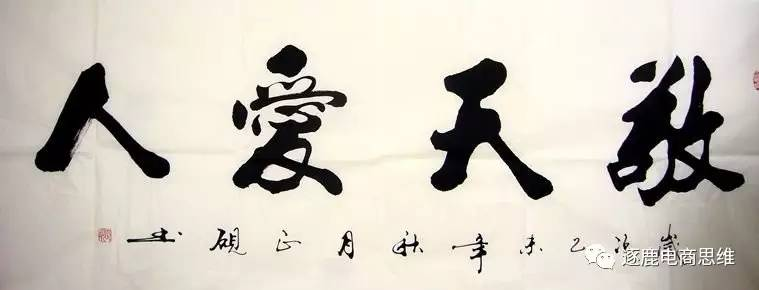 敬天愛人
歲次乙未年秋月正硯书
逐鹿电商思维